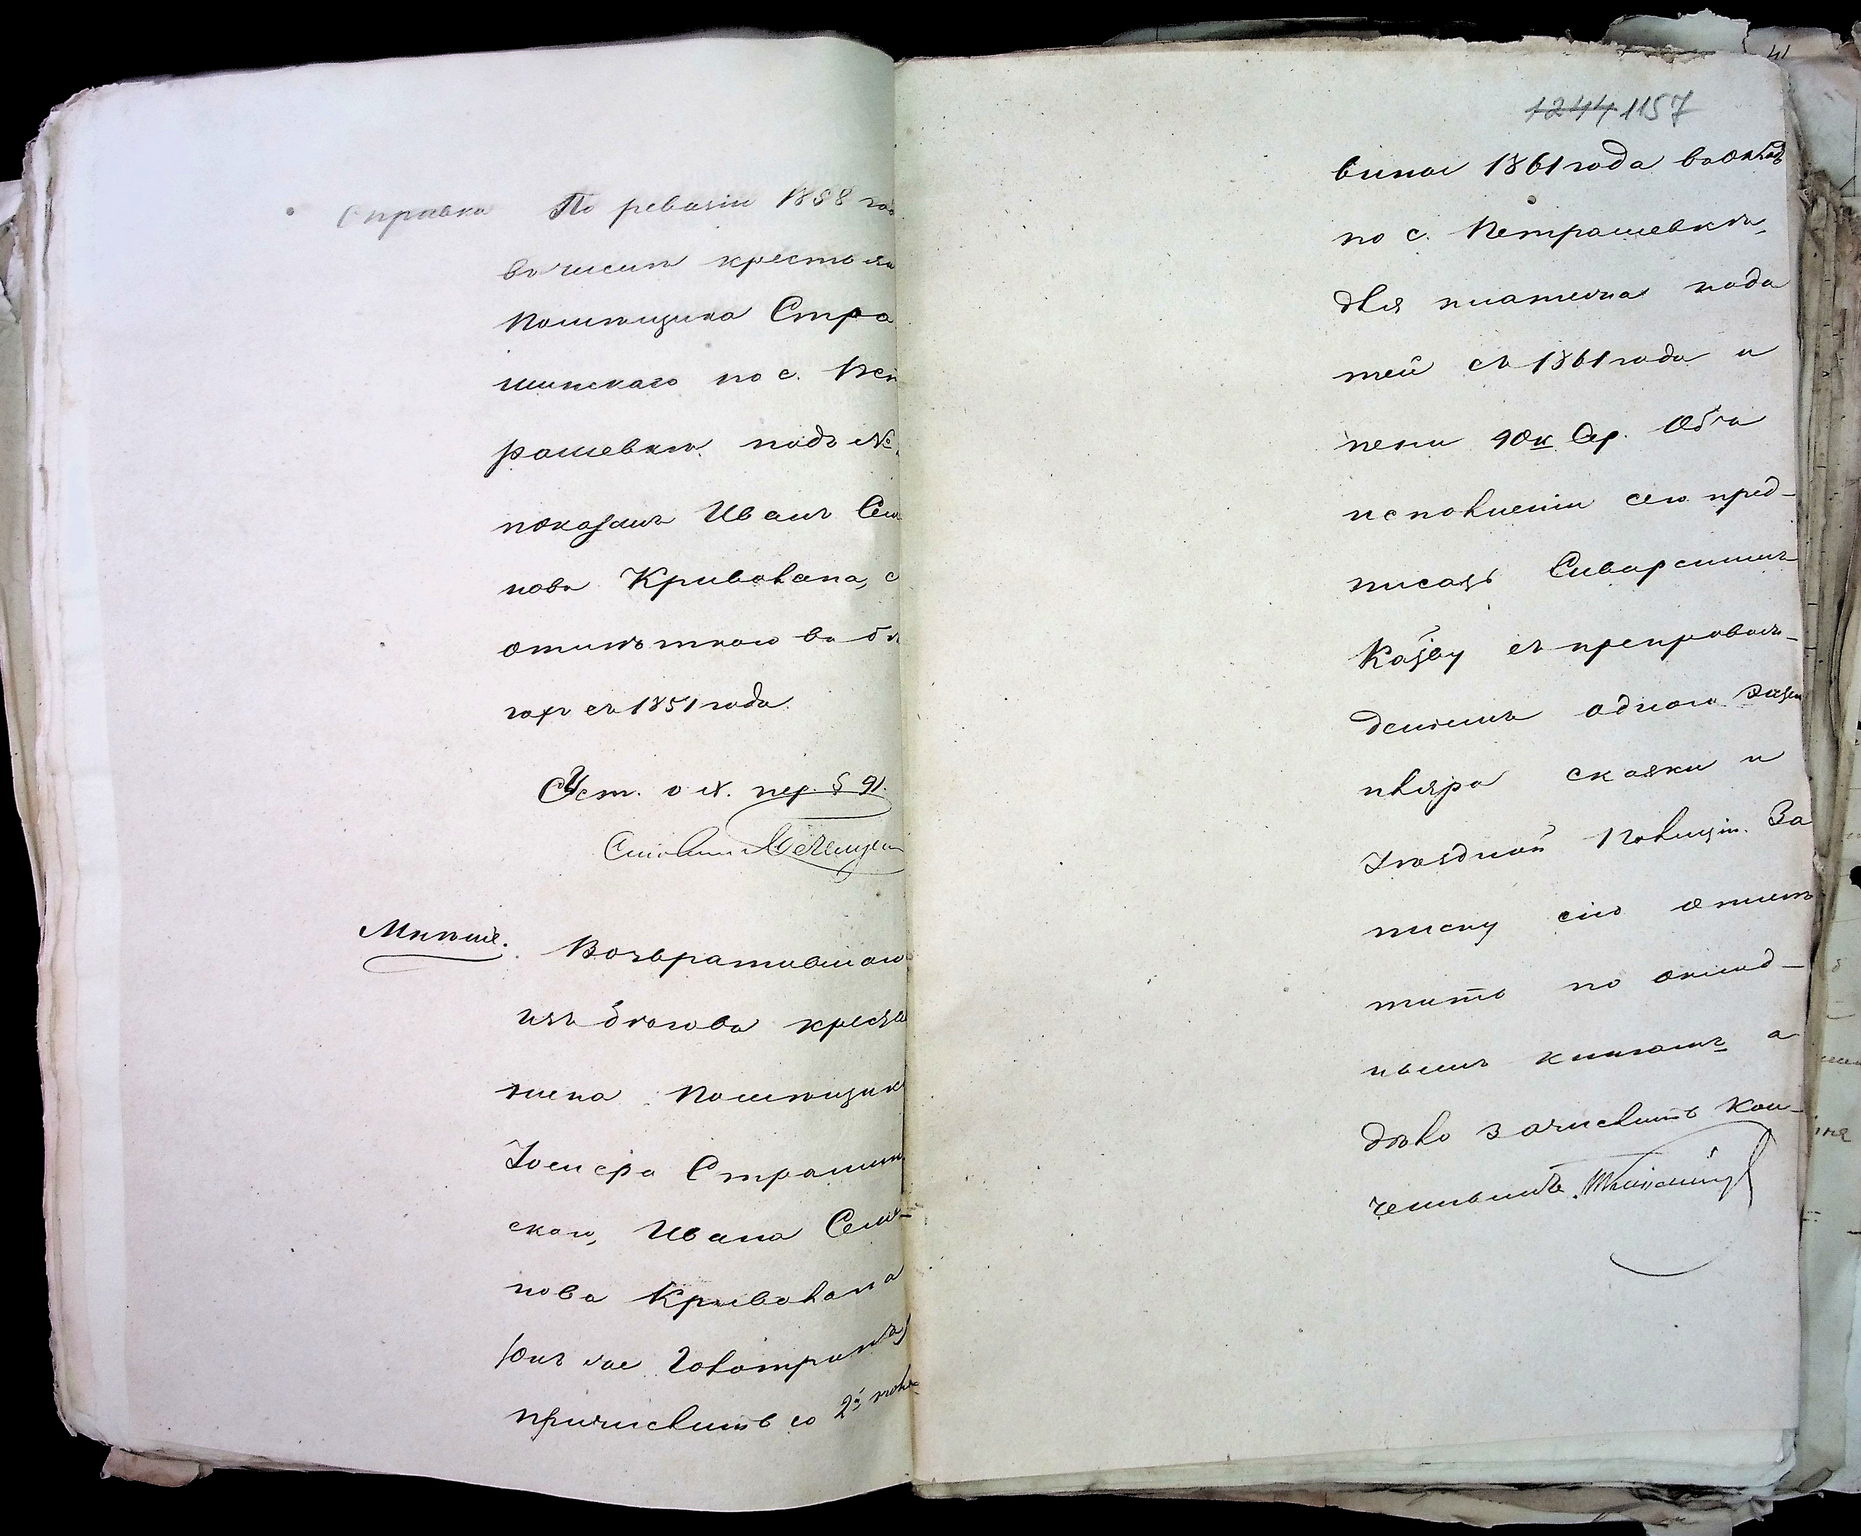 Справка По ревизіи 1858 го
въ числѣ крестьян
Помѣщика Стра
шинскаго по с. Пет
рашевкѣ подъ №
показанъ Иванъ Семе
новъ Криволапъ, с
отмѣткою въ бѣ
гахъ съ 1851 года.
Уст. о х. пер. § 91.
Мнѣніе. Возвратившагося
изъ бѣговъ крестья
нина Помѣщика
Іосифа Страшин
скаго, Ивана Семе-
нова Криволапа
(онъ жеГолотрипъ)
причислить со 2й поло
1244 1157
вины 1861 года въ окладъ
по с. Петрашевкѣ,
для платежа пода
тей съ 1861 года и
пени 90к Сер. Объ
исполненіи сего пред-
писать Сквирскому
Каз-ву съ препровож-
деніемъ одного экзем
пляра сказки и
Уѣздной Полиціи. За
писку сію отмѣ
тить по оклад-
нымъ книгамъ а
дѣло зачислить кон-
ченнымъ.